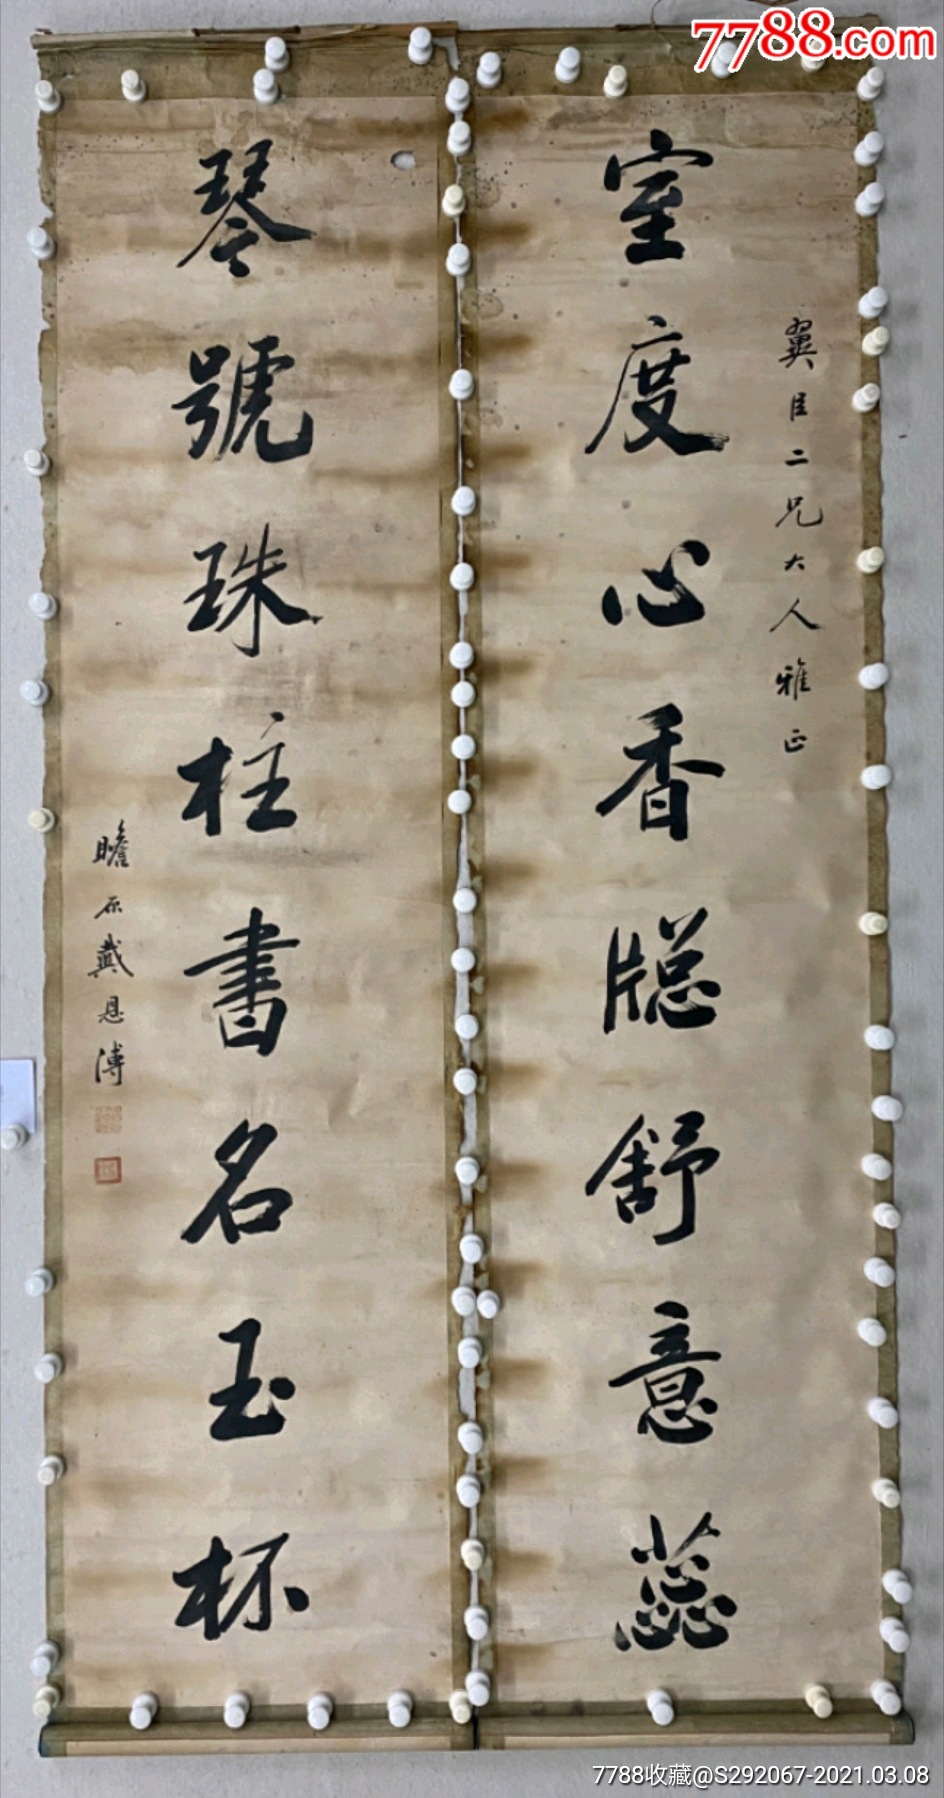 7788.com
翼臣二兄大人雅正
室度心香牎舒意蕊
琴號珠柱書名玉杯
瞻原戴恩溥
7788收藏@S292067-2021.03.08